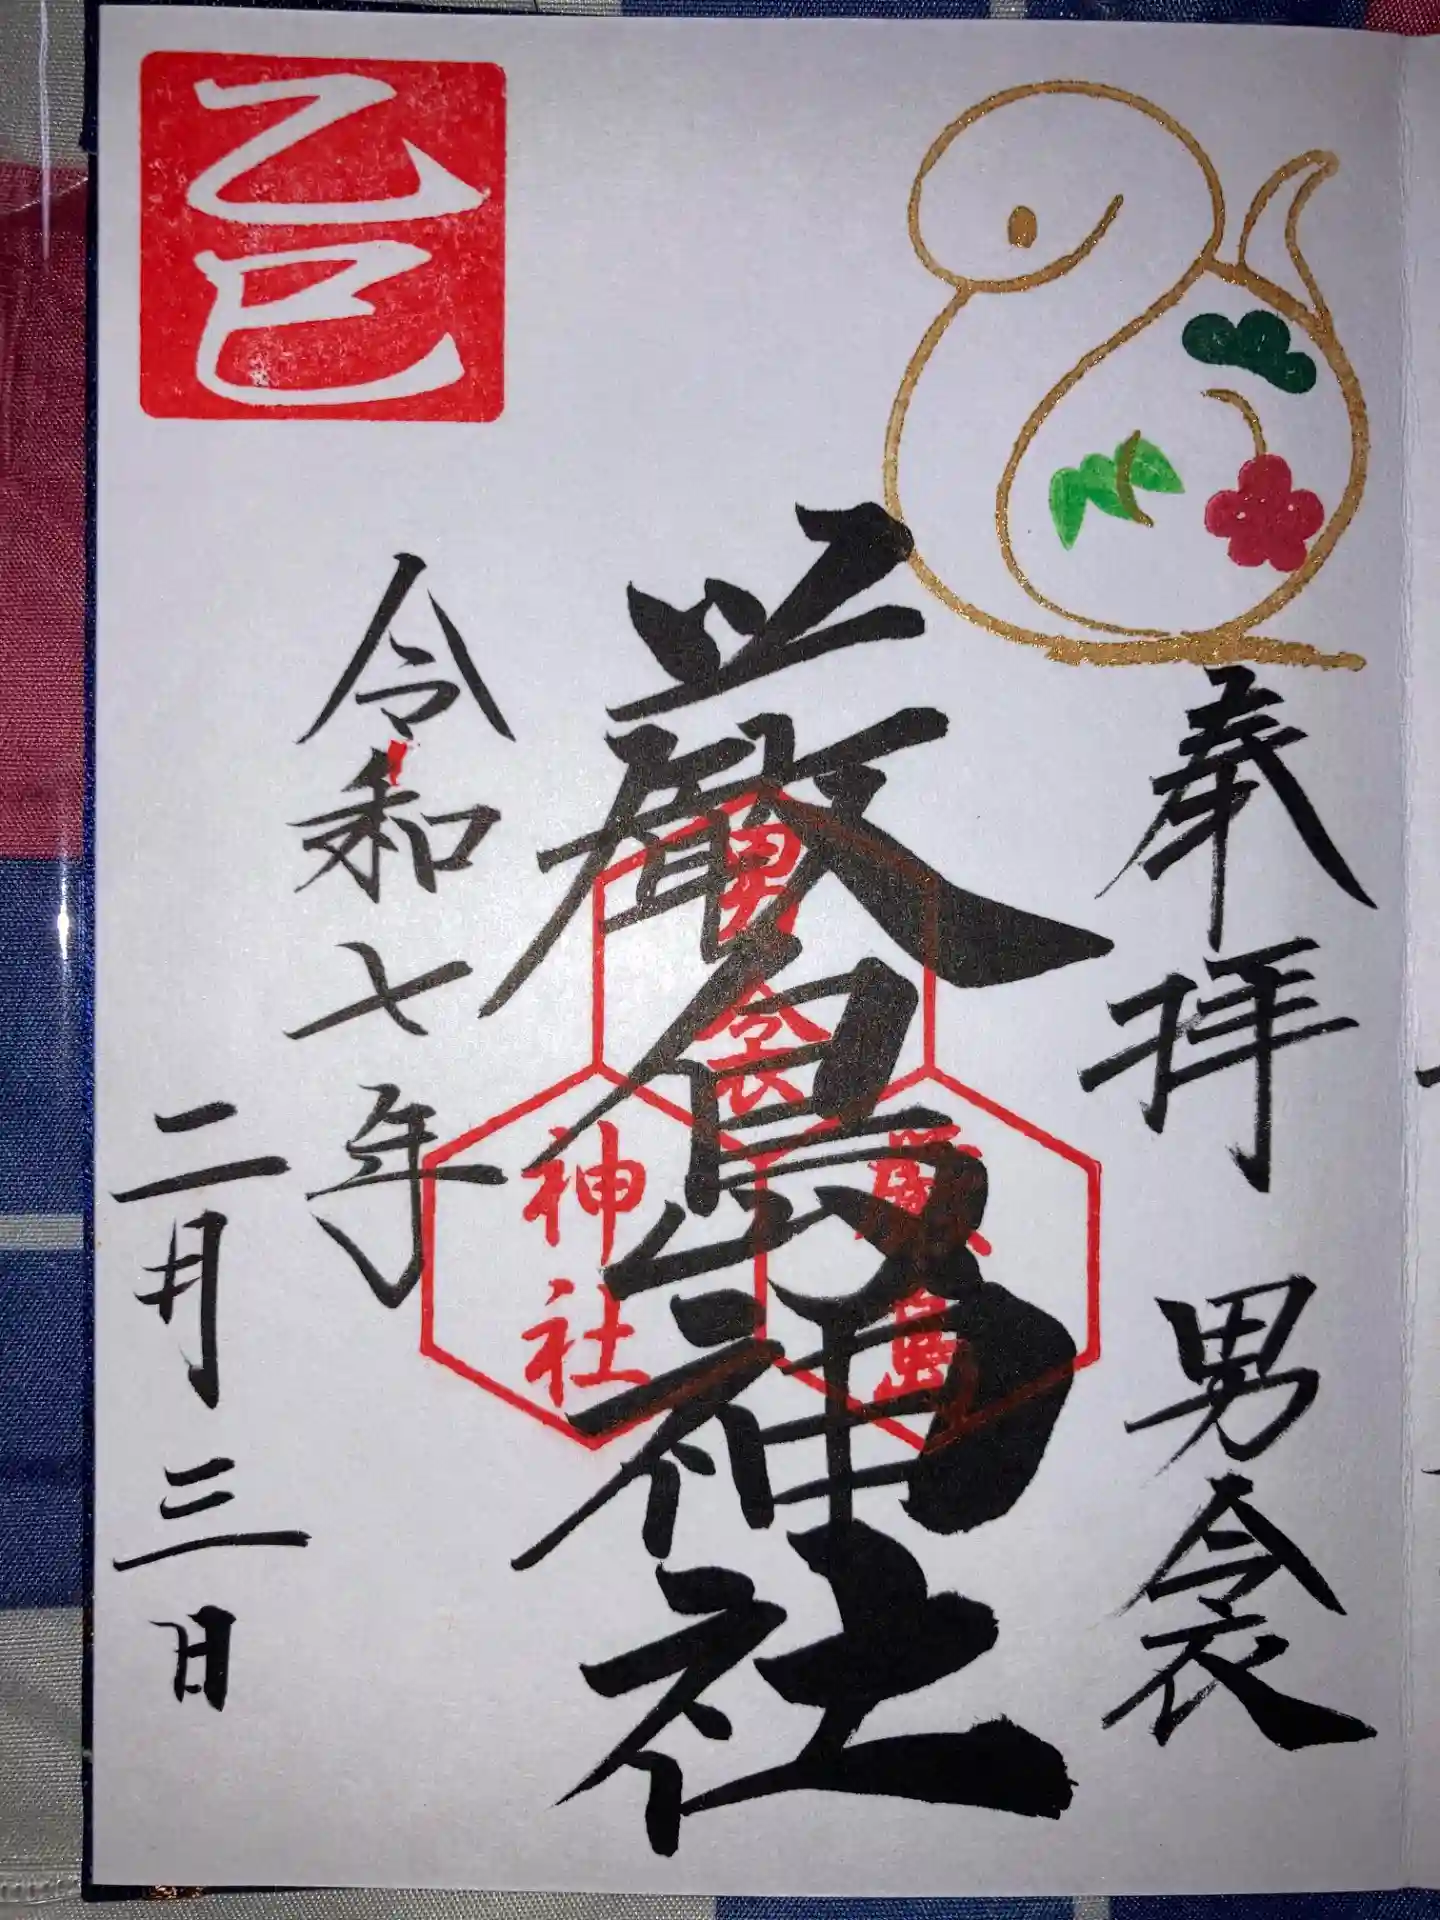 奉拝 男衾
嚴島神社
男衾
嚴島
神社
令和七年
二月三日
乙巳